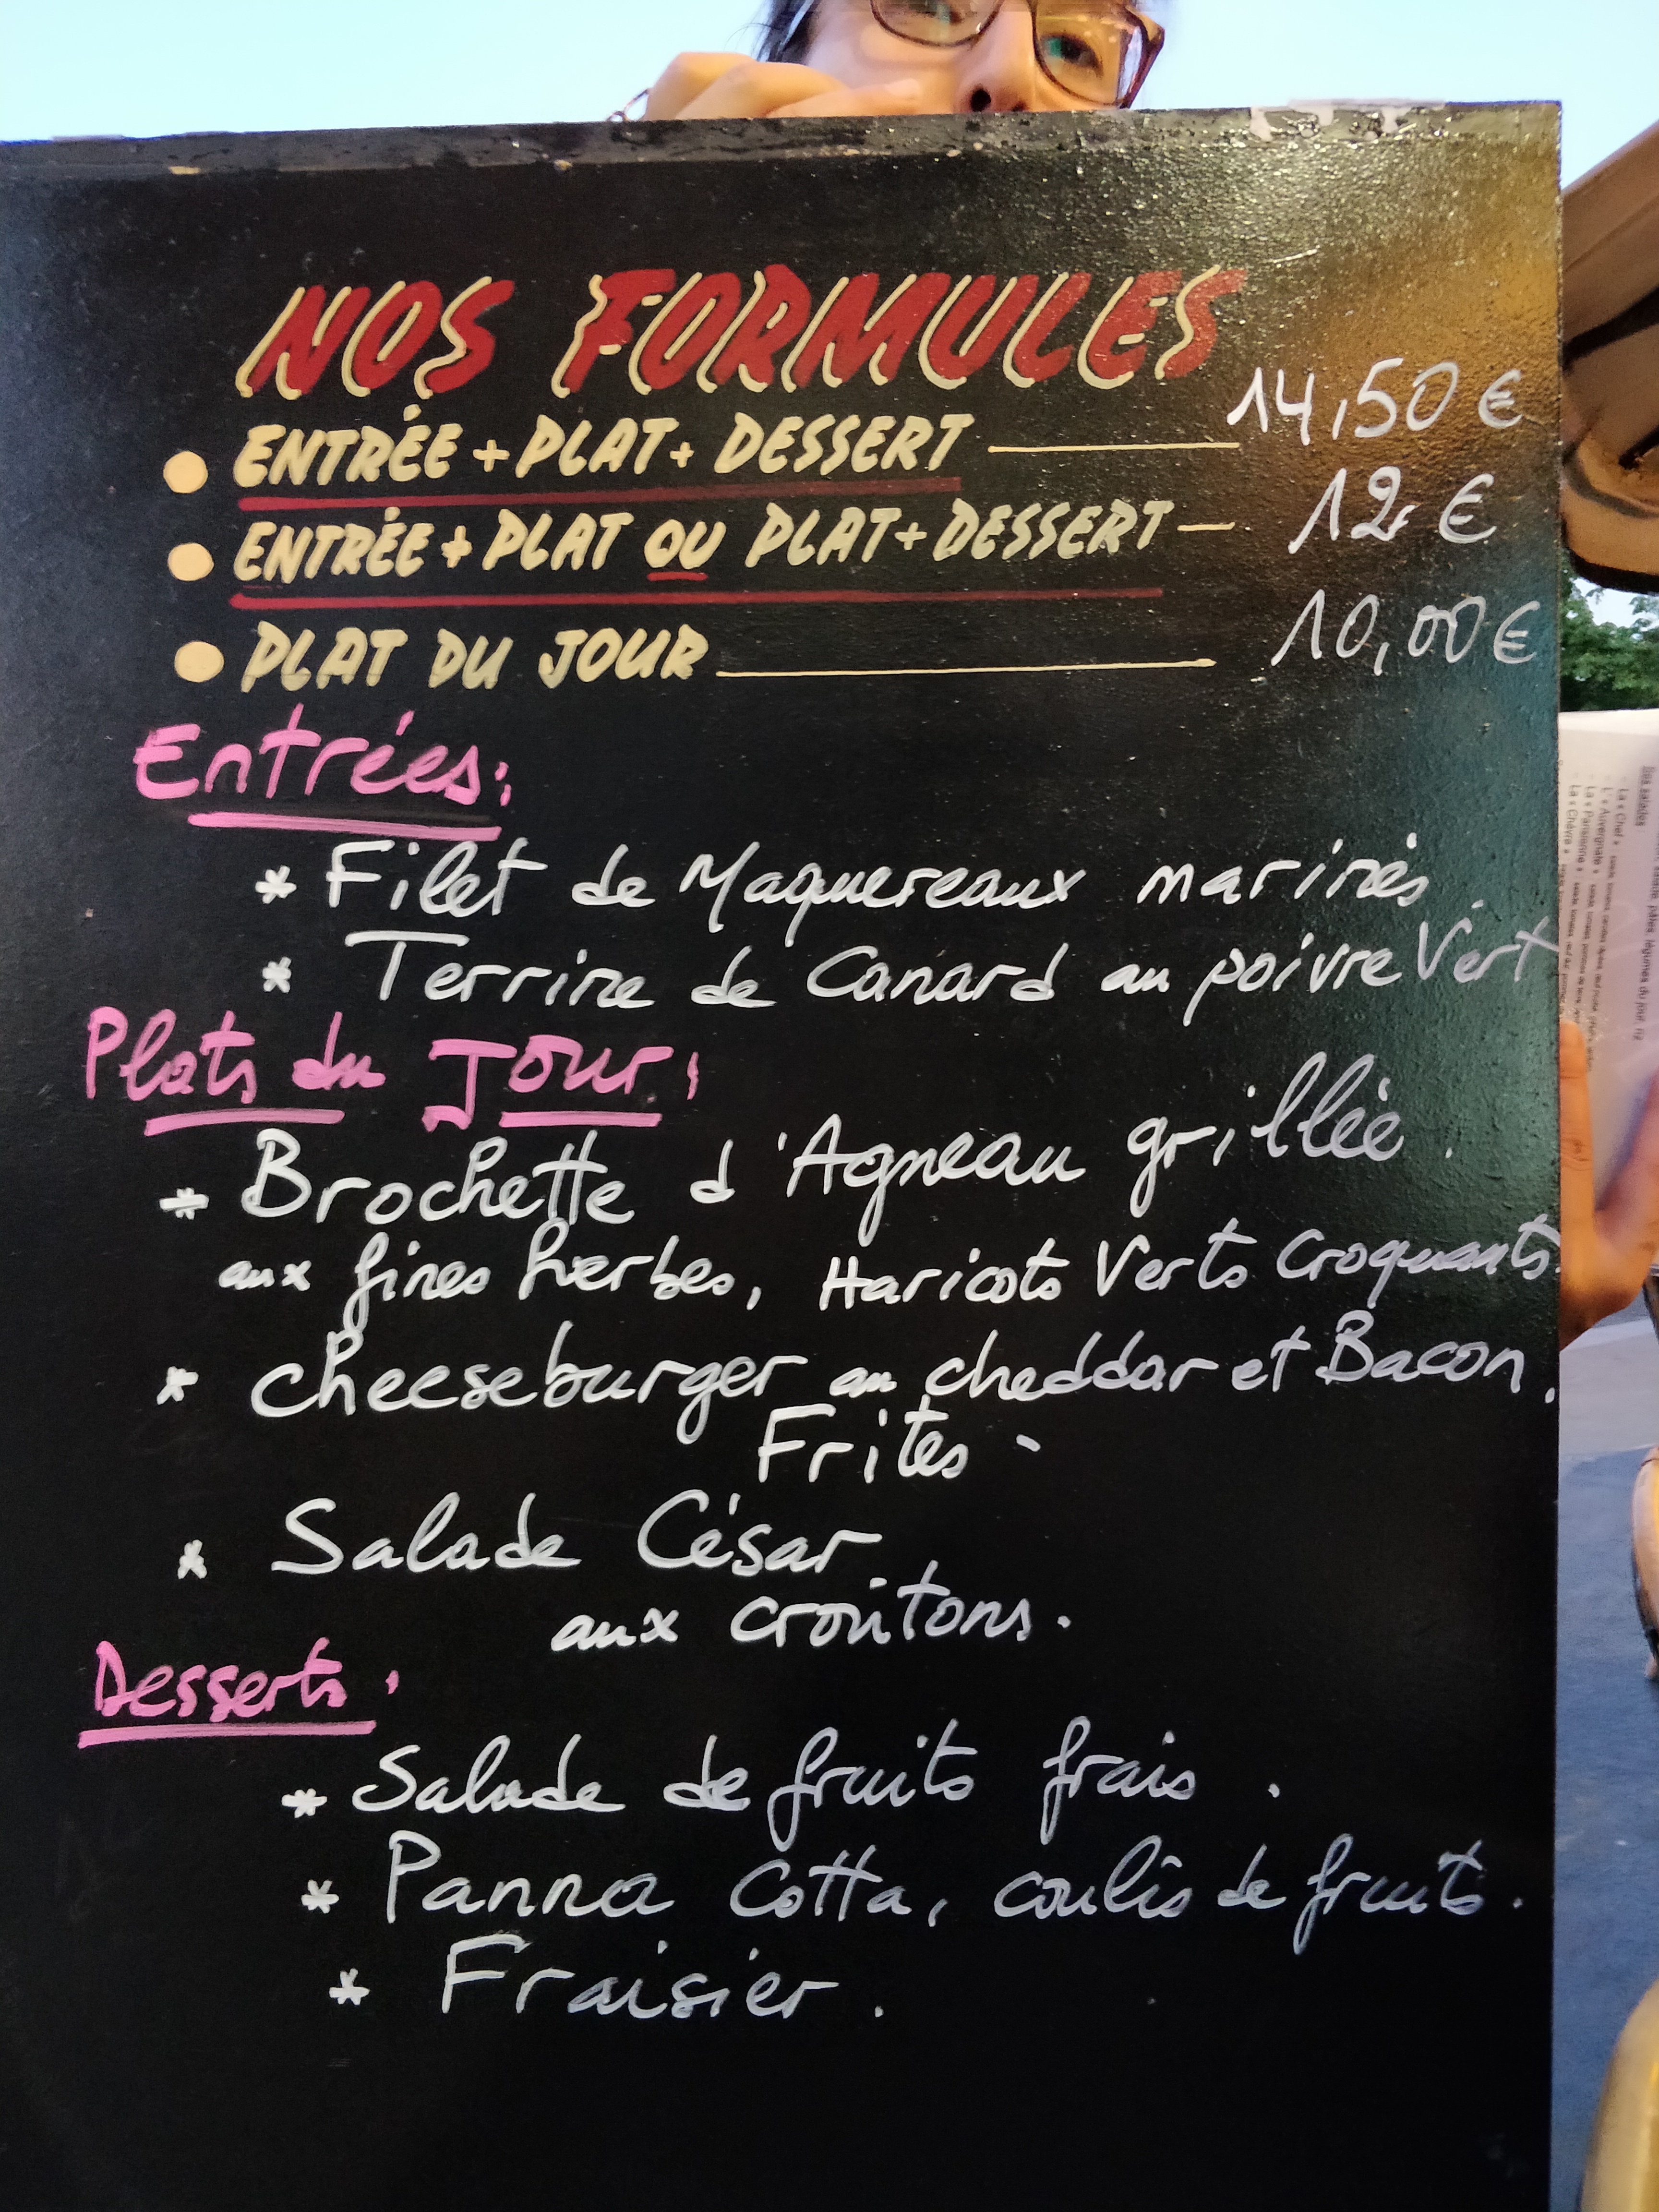 NOS FORMULES
● ENTRÉE + PLAT + DESSERT 14,50 €
● ENTRÉE + PLAT OU PLAT + DESSERT 12 €
● PLAT DU JOUR 10,00 €
Entrées:
* Filet de Maquereaux marinés.
* Terrine de Canard au poivre Vert
Plats du Jour:
* Brochette d'Agneau grillée.
aux fines herbes, Haricots Verts Croquants.
* cheeseburger au cheddar et Bacon,
Frites.
* Salade César
aux croûtons.
Desserts:
* Salade de fruits frais.
* Panna Cotta, coulis de fruits.
* Fraisier.
Nos salades
La « Chef »
L' « Auvergnate »
La « Parisienne »
La « Chèvre »